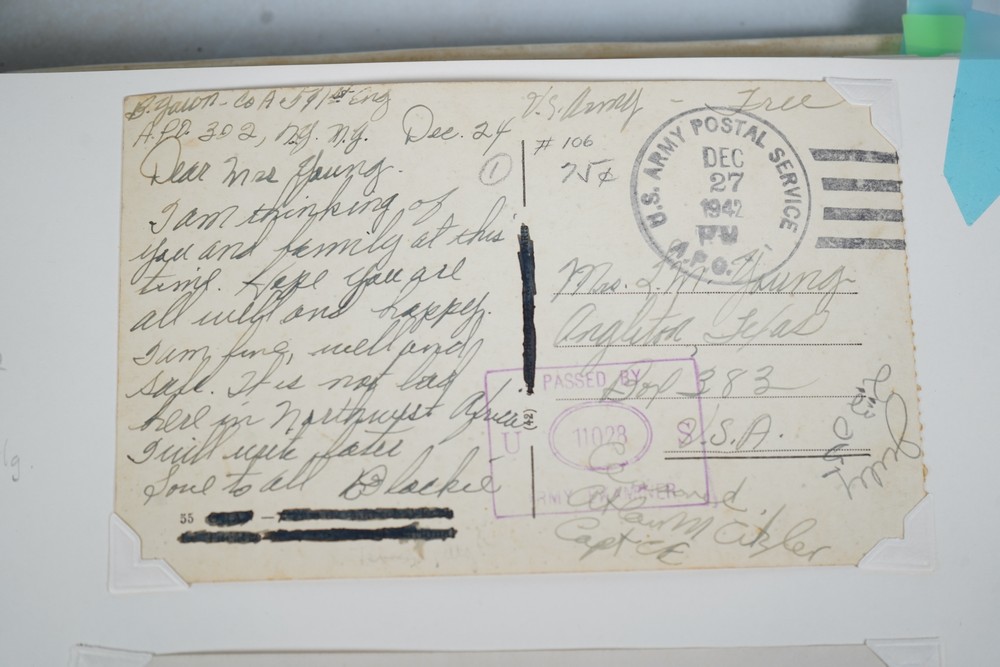 B. Yawn - Co A - 591st Eng
A.P.O. 302, N.Y. N.Y. Dec. 24
Dear Mrs Young.
I am thinking of
you and family at this
time. Hope you are
all well and happy.
I am fine, well and
safe. It is not bad
here in Northwest Africa
I will write later
Love to all Blackie
55
1
(42)
U.S. Army - Free
# 106
75¢
U.S. ARMY POSTAL SERVICE
DEC
27
1942
PM
A.P.O.
Mrs. L.M. Young
Angleton Texas
Box 383
U.S.A.
PASSED BY
U 11023 S
ARMY EXAMINER
Capt CE